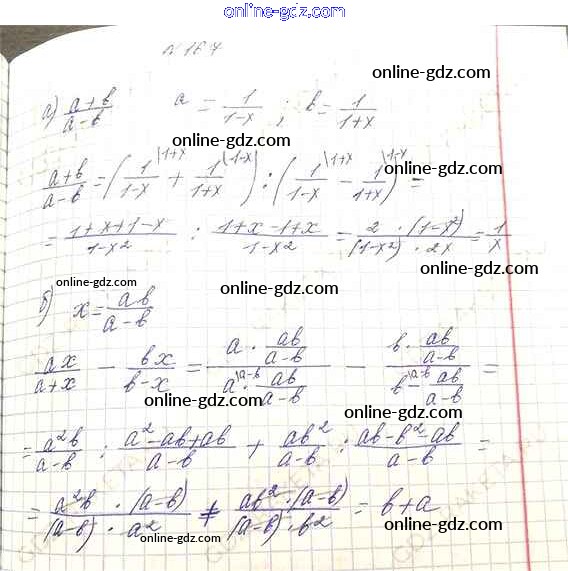 online-gdz.com
N 167
online-gdz.com
а) (a+b)/(a-b)   a = 1/(1-x) ; b = 1/(1+x)
online-gdz.com
online-gdz.com
(a+b)/(a-b) = (1/(1-x) |1+x + 1/(1+x) |1-x) : (1/(1-x) |1+x - 1/(1+x) |1-x) =
online-gdz.com
online-gdz.com
= (1+x+1-x)/(1-x²) : (1+x-1+x)/(1-x²) = (2 · (1-x²))/((1-x²) · 2x) = 1/x
online-gdz.com
online-gdz.com
б) x = ab/(a-b)
online-gdz.com
online-gdz.com
ax/(a+x) - bx/(b-x) = (a · ab/(a-b))/(a |a-b · ab/(a-b)) - (b · ab/(a-b))/(b |a-b - ab/(a-b)) =
online-gdz.com
online-gdz.com
= a²b/(a-b) : (a²-ab+ab)/(a-b) + ab²/(a-b) : (ab-b²-ab)/(a-b) =
online-gdz.com
online-gdz.com
= (a²b · (a-b))/((a-b) · a²) + (ab² · (a-b))/((a-b) · b²) = b+a
online-gdz.com
online-gdz.com